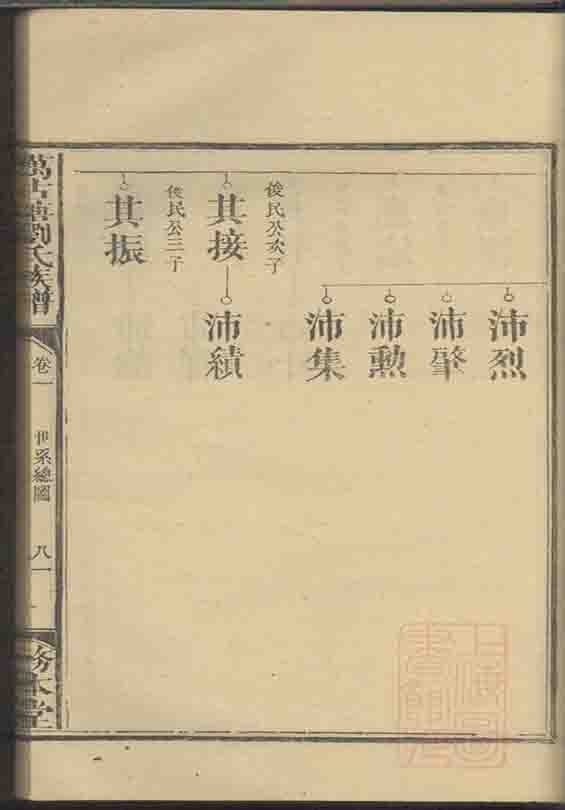 沛烈
沛肇
沛勳
沛集
俊民公次子
其接
沛績
俊民公三子
其振
萬古塘劉氏族譜
卷一
世系總圖
八一
務本堂
上海圖
書館藏